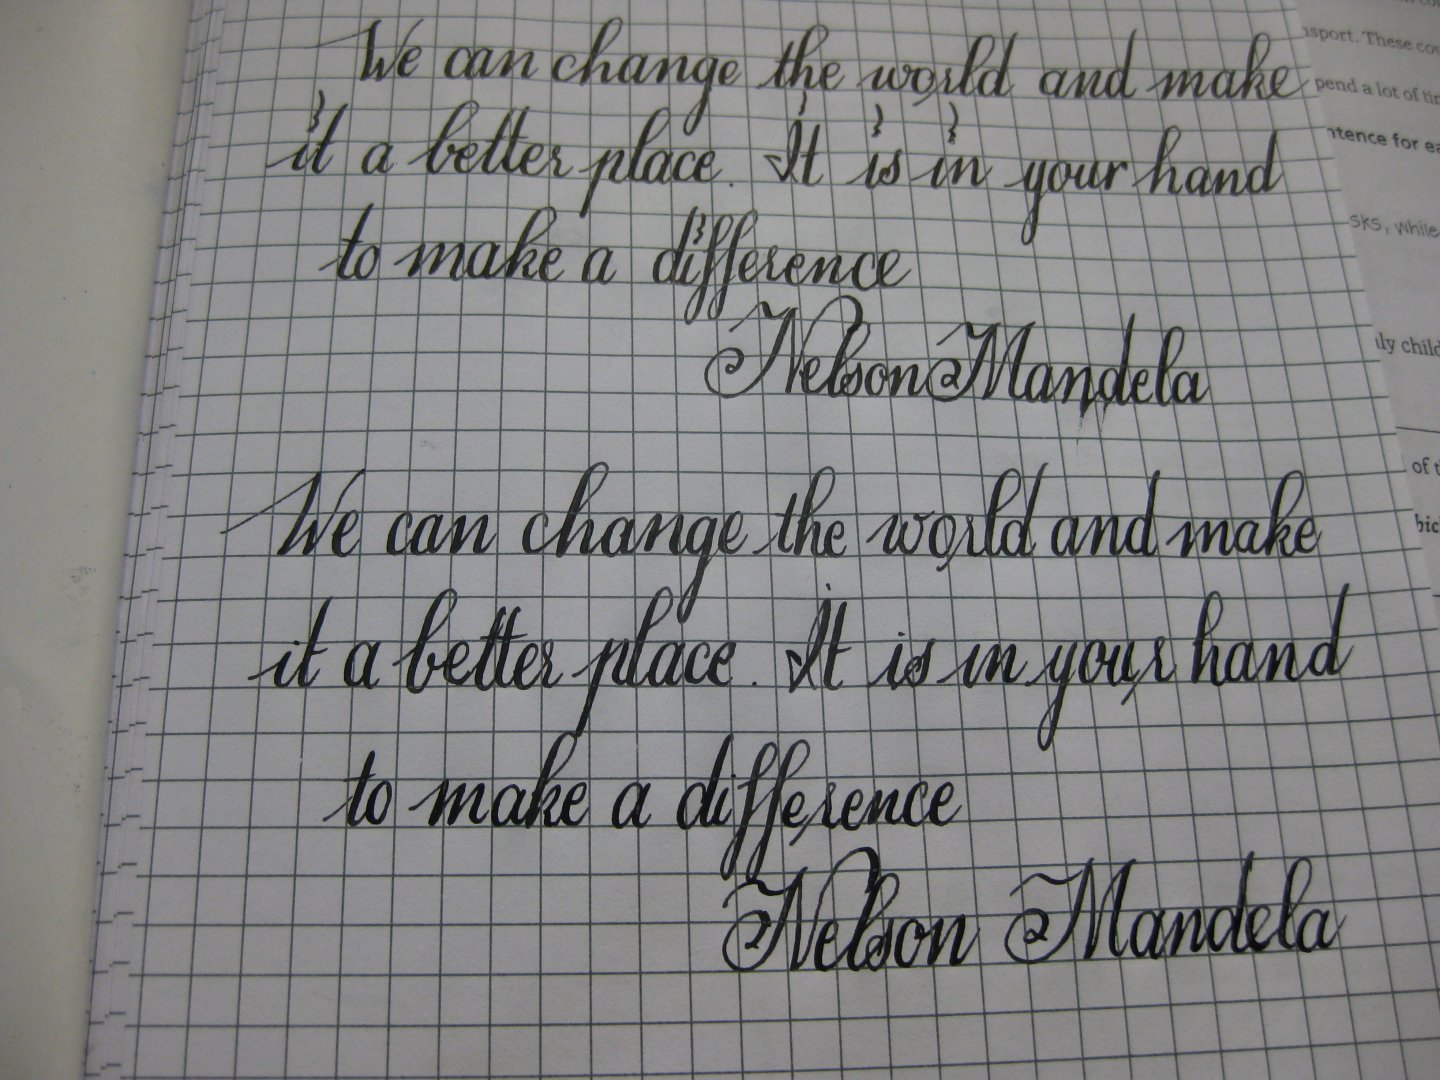 We can change the world and make
it a better place. It is in your hand
to make a difference
Nelson Mandela
We can change the world and make
it a better place. It is in your hand
to make a difference
Nelson Mandela
These
pend a lot of
ntence for
sks, while
ly child
of